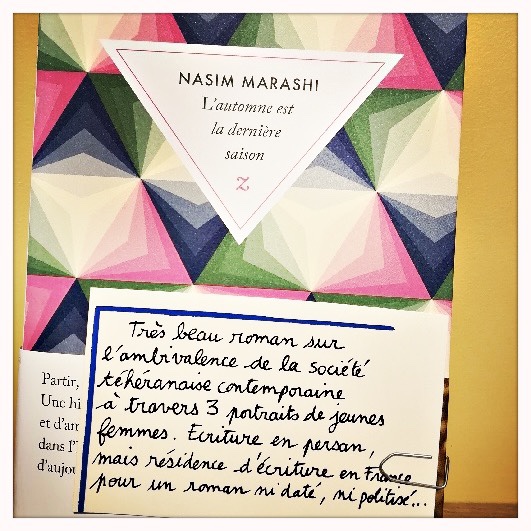 NASIM MARASHI
L'automne est
la dernière
saison
Z
Partir,
Une hi
et d'am
dans l'I
d'aujou
Très beau roman sur
l'ambivalence de la société
téhéranaise contemporaine
à travers 3 portraits de jeunes
femmes. Ecriture en persan,
mais résidence d'écriture en France
pour un roman ni daté, ni politisé...